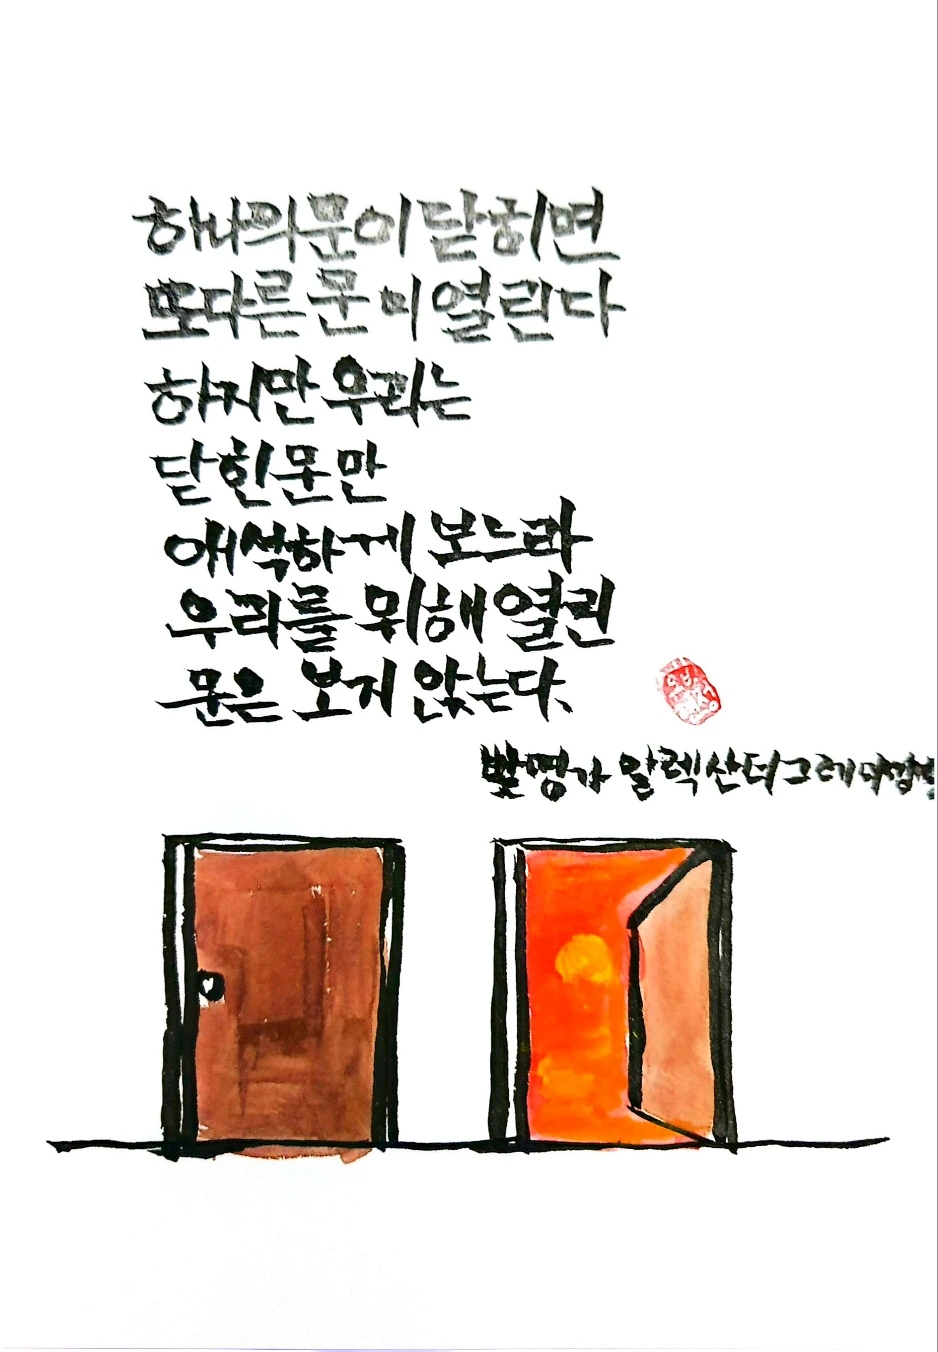 하나의 문이 닫히면
또다른 문이 열린다
하지만 우리는
닫힌 문만
애석하게 보느라
우리를 위해 열린
문은 보지 않는다.
발명가 알렉산더그레이엄벨